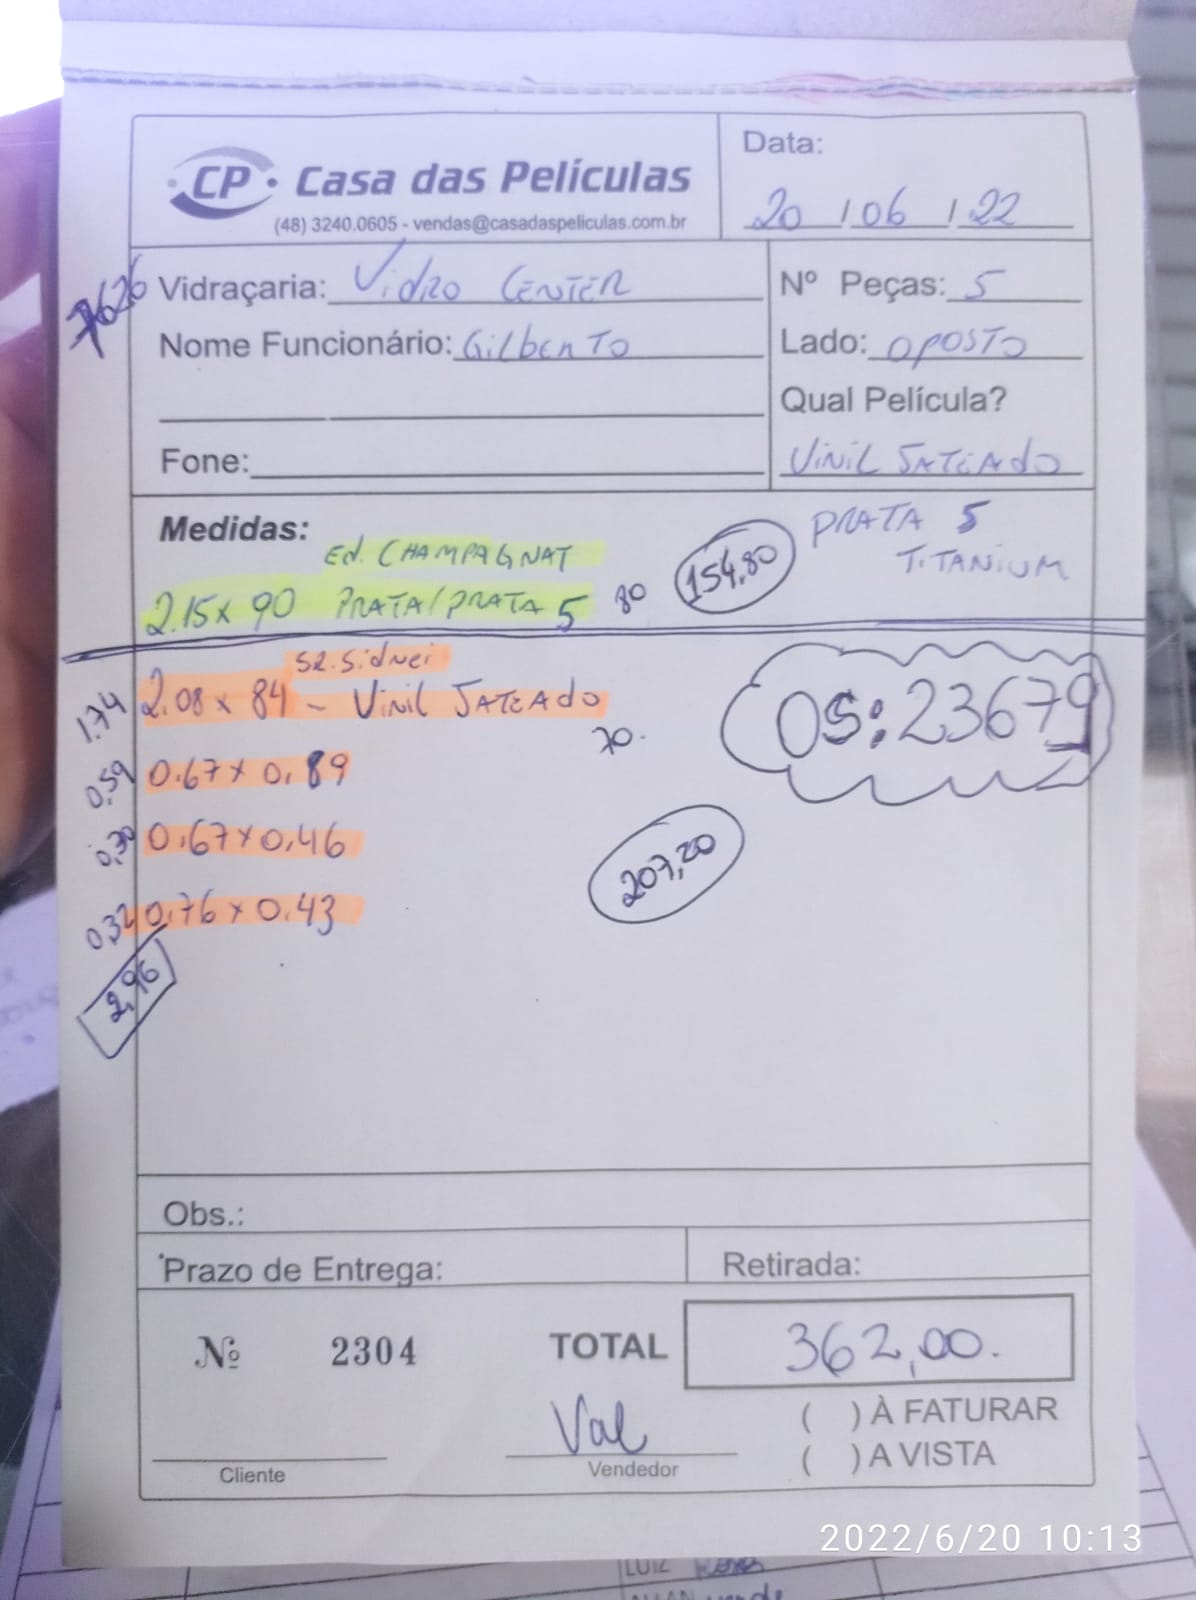 CP Casa das Películas
(48) 3240.0605 - vendas@casadaspeliculas.com.br
Data:
20 / 06 / 22
7626
Vidraçaria: Vidro Center
Nome Funcionário: Gilberto
Fone:
Nº Peças: 5
Lado: oposto
Qual Película?
Vinil Jateado
Prata 5
Titanium
Medidas:
Ed. Champagnat
2.15 x 90 Prata/Prata 5 80 154,80
Sr. Sidnei
1.74 2.08 x 84 - Vinil Jateado
70.
OS: 23679
0,59 0.67 x 0.89
0,30 0.67 x 0.46
207,20
0,32 0.76 x 0.43
2,96
Obs.:
Prazo de Entrega:
Retirada:
Nº 2304
TOTAL 362,00.
Val
Cliente
Vendedor
( ) À FATURAR
( ) A VISTA
2022/6/20 10:13
LUIZ